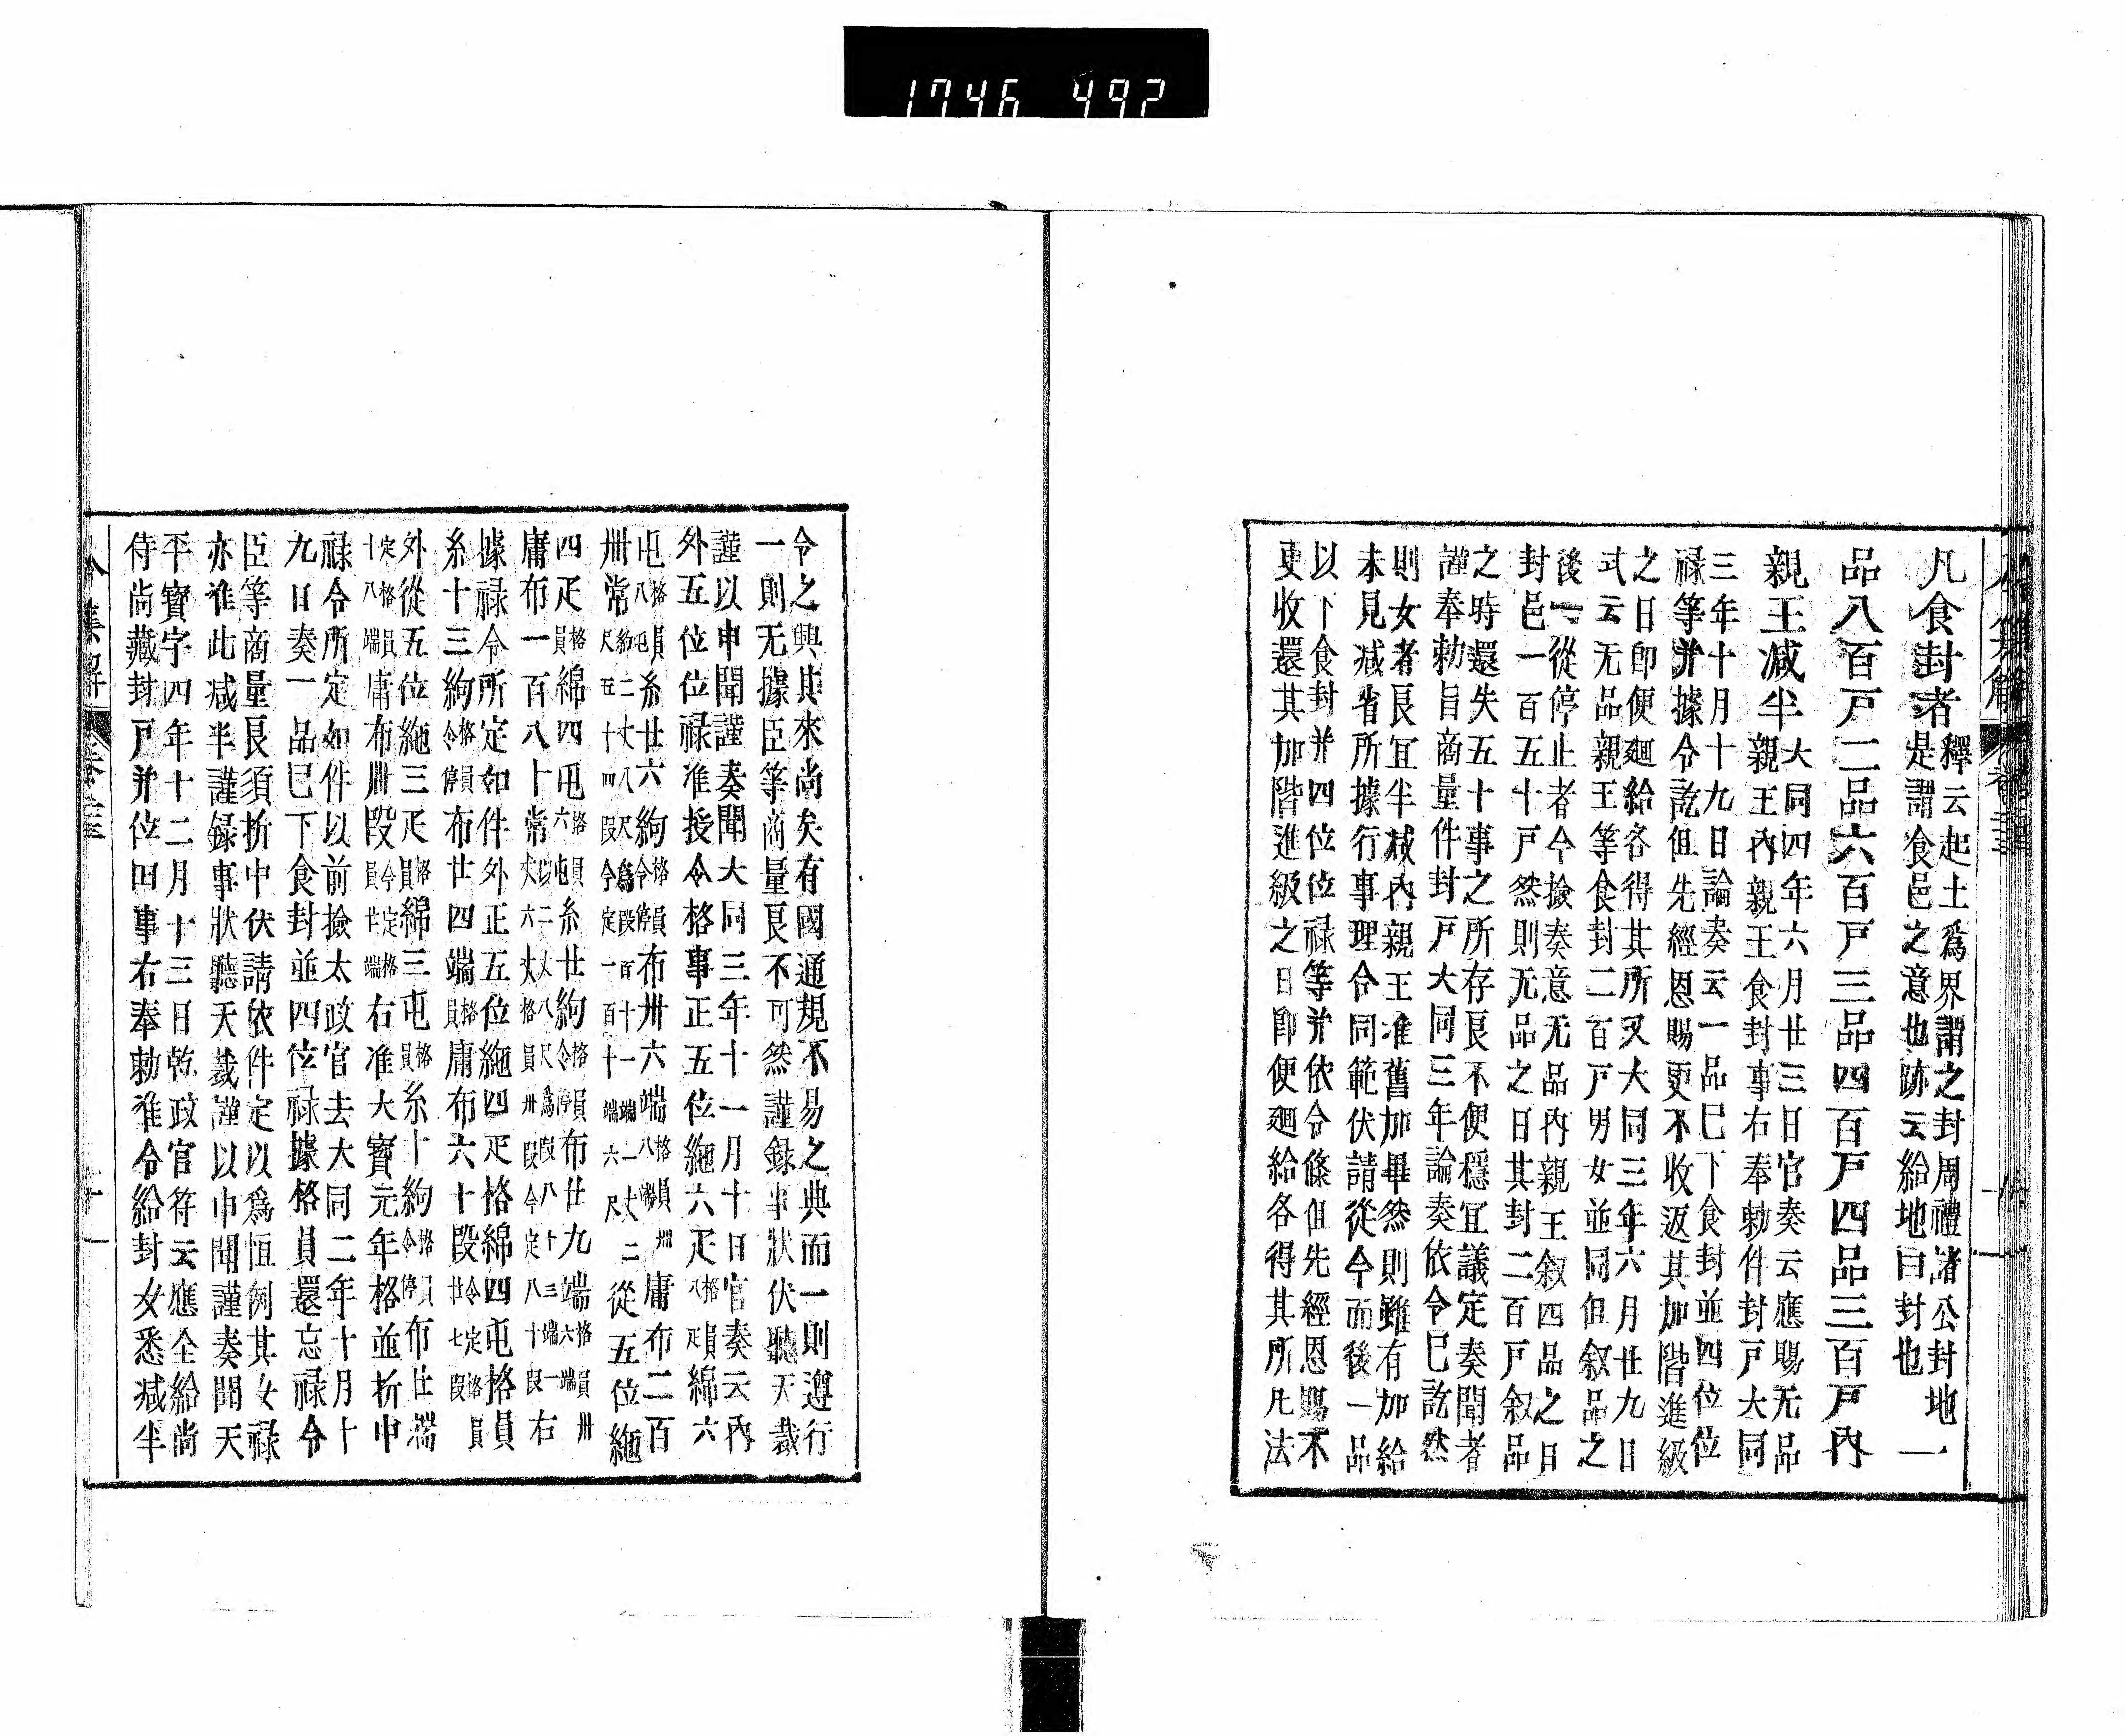 1746 492
凡食封者
釋云起土爲界謂之封周禮諸公封地
是謂食邑之意也跡云給地曰封也
一
品八百戸二品六百戸三品四百戸四品三百戸內
親王減半
大同四年六月廿三日官奏云應賜无品
親王內親王食封事右奉勅件封戸大同
三年十月十九日論奏云一品已下食封並四位位
祿等并據令訖但先經恩賜更不收返其加階進級
之日卽便廻給各得其所又大同三年六月廿九日
式云无品親王等食封二百戸男女並同但叙品之
後一從停止者今撿奏意无品內親王叙四品之日
封邑一百五十戸然則无品之日其封二百戸叙品
之時還失五十事之所存良不便穩宜議定奏聞者
謹奉勅旨商量件封戸大同三年論奏依令已訖然
則女者良宜半減內親王准舊加畢然則雖有加給
未見減省所據行事理合同範伏請從今而後一品
以下食封并四位位祿等并依令條但先經恩賜不
更收還其加階進級之日卽便廻給各得其所凡法
令之興其來尚矣有國通規不易之典而一則遵行
一則无據臣等商量良不可然謹録事狀伏聽天裁
謹以申聞謹奏聞大同三年十一月十日官奏云內
外五位位祿准授令格事正五位絁六疋
格員
八疋
綿六
屯
格員
八屯
糸廿六絇
格員
令停
布卅六端
格員
八端
卌
庸布二百
卌常
約二丈八尺爲段百十一端一丈二
尺五十四段今定一百十端六尺
從五位絁
四疋
格
員
綿四屯
格員
六屯
糸廿絇
格員
令停
布廿九端
格員卌
六端
庸布一百八十常
以二丈八尺爲段八十三端一
丈六丈格員卅段今定八十段
右
據祿令所定如件外正五位絁四疋格綿四屯格員
糸十三絇
格員
令停
布廿四端
格
員
庸布六十段
令定格員
廿七段
外從五位絁三疋
格
員
綿三屯
格
員
糸十絇
格員
令停
布廿端
定格員
十八端
庸布卅段
令定格
員廿端
右准大寶元年格並折中
祿令所定如件以前撿太政官去大同二年十月十
九日奏一品已下食封並四位祿據格員還忘祿令
臣等商量良須折中伏請依件定以爲恒例其女祿
亦准此減半謹録事狀聽天裁謹以申聞謹奏聞天
平寶字四年十二月十三日乾政官符云應全給尚
侍尚藏封戸并位田事右奉勅准令給封女悉減半